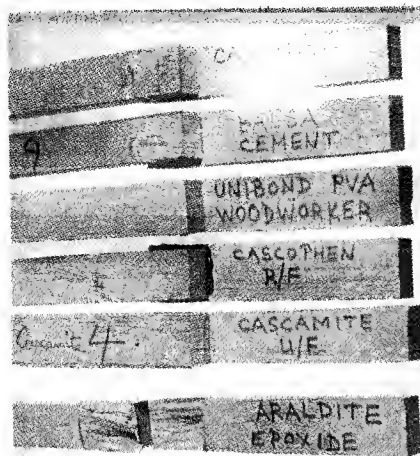 BALSA
CEMENT
UNIBOND PVA
WOODWORKER
CASCOPHEN
R/F
4
CASCAMITE
U/F
ARALDITE
EPOXIDE